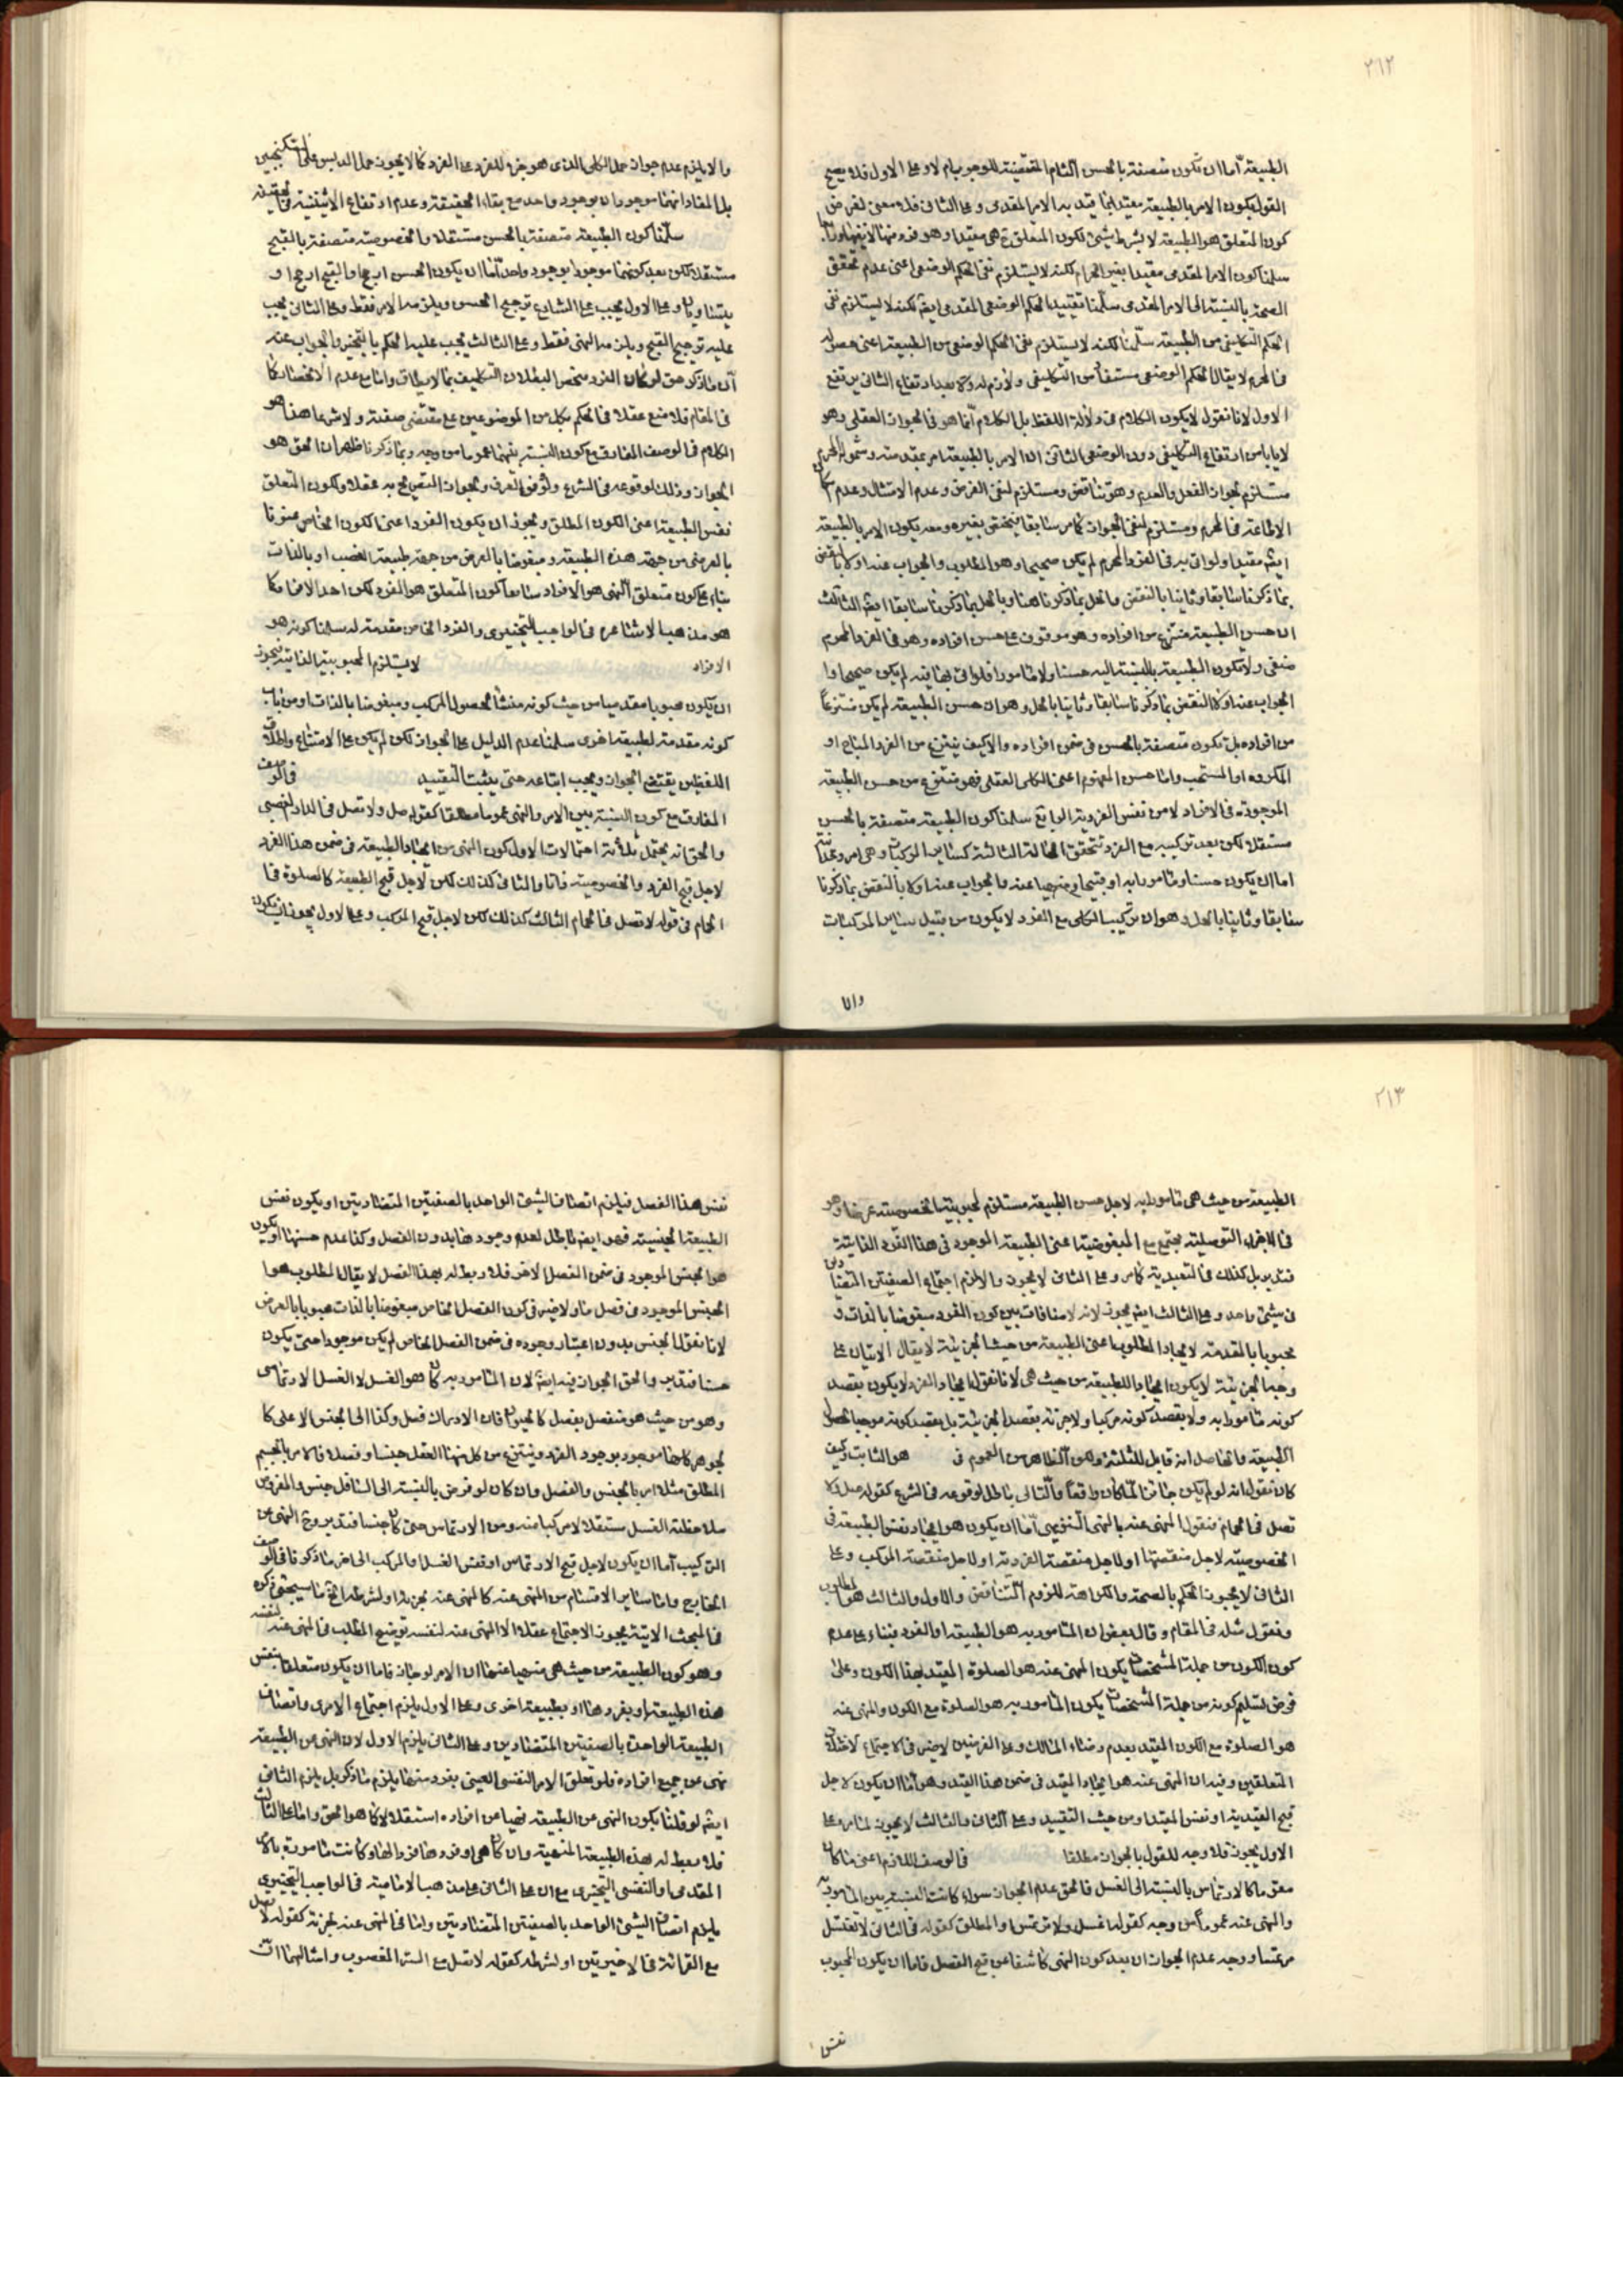 ٢١٢
الطبيعة اما ان تكون متصفة بالحسن التام المقتضية للوجوب ام لا وعلى الاول فلا يصح
القول بكون الامر بالطبيعة مقيد انما قيد به الامر المقدمى وعلى الثانى فلا معنى لفرض
كون المتعلق هو الطبيعة لا بشرط شيئ لكون المتعلق ح هى مقيدا وهو فرد منها لا نفسها
سلمنا كون الامر المقدمى مقيدا بغير الحرام لكنه لا يستلزم نفى الحكم الوضعى اعنى عدم تحقق
الصحة بالنسبة الى الامر المقدمى سلمنا تقييد الحكم الوضعى المقدمى ايضا لكنه لا يستلزم نفى
الحكم التكليفى من الطبيعة سلمنا لكنه لا يستلزم نفى الحكم الوضعى من الطبيعة اعنى حصوله
فى المحرم لا يقال الحكم الوضعى مستفاد من التكليفى ولازم له وبعد ارتفاع الثانى يرتفع
الاول لانا نقول لا يكون الكلام فى دلالة اللفظ بل الكلام انما هو فى الجواز العقلى وهو
لا ياباس ارتفاع التكليفى دون الوضعى الثانى ان الامر بالطبيعة امر بمقدمته وشموله للمحرم
مستلزم لجواز الفعل والعدم وهو تناقض ومستلزم لنفى الفرض وعدم الامتثال وعدم
الاطاعة فى المحرم ومستلزم لنفى الجواز كما مر سابقا فيختص بغيره ومعه يكون الامر بالطبيعة
ايضا مقيدا ولو اتى به فى الفرد المحرم لم يكن صحيحا وهو المطلوب والجواب عنه اولا بالنقض
بما ذكرنا سابقا وثانيا بالنقض والحل بما ذكرنا هنا وبالحل بما ذكرنا سابقا ايضا الثالث
ان حسن الطبيعة منتزع من افراده وهو موقوف على حسن افراده وهو فى الفرد المحرم
منفى ولا تكون الطبيعة بالنسبة اليه حسنا ولا مامورا فلو اتى بها فيه لم يكن صحيحا و
الجواب عنه اولا النقض بما ذكرنا سابقا وثانيا بالحل وهو ان حسن الطبيعة لم يكن منتزعا
من افراده بل تكون متصفة بالحسن فى ضمن افراده والا كيف ينتزع من الفرد المباح او
المكروه او المستحب واما حسن المفهوم اعنى الكلى العقلى فهو منتزع من حسن الطبيعة
الموجودة فى الافراد لا من نفس الفردية الرابع سلمنا كون الطبيعة متصفة بالحسن
مستقلا لكن بعد تركيبه مع الفرد تتحقق الحالة الثالثة كسائر المركبات وهى امر وحدانى
اما ان يكون حسنا ومامورا به او قبيحا ومنهيا عنه والجواب عنه اولا بالنقض بما ذكرنا
سابقا وثانيا بالحل وهو ان تركيب الكلى مع الفرد لا يكون من قبيل سائر المركبات
والا
والا يلزم عدم جواز حمل الكلى الذى هو جزء للفرد على الفرد كما لا يجوز حمل الدبس على السكنجبين
بل المفاد انهما موجودان بوجود واحد مع بقاء الحقيقة وعدم ارتفاع الاثنينية فى الحقيقة
سلمنا كون الطبيعة متصفة بالحسن مستقلا والخصوصية متصفة بالقبح
مستقلا لكن بعد كونهما موجودا بوجود واحد اما ان يكون الحسن ارجح او القبح ارجح او
يتساويان وعلى الاول يجب على الشارع ترجيح الحسن ويلزمه الامر فقط وعلى الثانى يجب
عليه ترجيح القبح ويلزمه النهى فقط وعلى الثالث يجب عليه الحكم بالتخيير والجواب عنه
ان ما ذكر حق لو كان الفرد منحصرا لبطلان التكليف بما لا يطاق واما مع عدم الانحصار كما
فى المقام فلا منع عقلا فى الحكم بكل من الموضوعين على مقتضى صفته ولا شرعا هذا هو
الكلام فى الوصف المفارق مع كون النسبة بينهما عموما من وجه وبما ذكرنا ظهر ان الحق هو
الجواز وذلك لوقوعه فى الشرع ولوفق العرف ولجواز التصريح به عقلا ولكون المتعلق
نفس الطبيعة اعنى الكون المطلق ويجوز ان يكون الفرد اعنى الكون الخاص محبوبا
بالعرض من جهة هذه الطبيعة ومبغوضا بالعرض من جهة طبيعة الغصب او بالذات
بناء على كون متعلق النهى هو الافراد سلمنا كون المتعلق هو الفرد لكن احد الافراد كما
هو مذهب الاشاعرة فى الواجب التخييرى والفرد الخاص مقدمة له سلمنا كونه هو
الافراد لا يستلزم المحبوبية الذاتية فيجوز
ان يكون محبوبا مقدميا من حيث كونه منشأ لحصول المركب ومبغوضا بالذات او من باب
كونه مقدمة لطبيعة اخرى سلمنا عدم الدليل على الجواز لكن لم يكن على الامتناع واطلاق
اللفظين يقتضى الجواز ويجب اتباعه حتى يثبت التقييد فى الوصف
المفارق مع كون النسبة بين الامر والنهى عموما مطلقا كقوله صل ولا تصل فى الدار الغصبى
والحق انه يحتمل ثلاثة احتمالات الاول كون النهى من ايجاد الطبيعة فى ضمن هذا الفرد
لاجل قبح الفرد والخصوصية ذاتا والثانى كذلك لكن لاجل قبح الطبيعة كالصلوة فى
الحمام فى قوله لا تصل فى الحمام الثالث كذلك لكن لاجل قبح المركب وعلى الاول يجوز ان يكون
٢١٣
الطبيعة من حيث هى مامورا به لاجل حسن الطبيعة مستلزم لمحبوبية الخصوصية عرضا وهو
فى الاجزاء التوصلية يجتمع مع المبغوضية اعنى الطبيعة الموجود فى هذا الفرد الذاتية
فتدبر بل كذلك فى التعبدية كما مر وعلى الثانى لا يجوز والا لزم اجتماع الصفتين المتضادين
فى شيئ واحد وعلى الثالث ايضا يجوز لانه لا منافات بين كون الفرد مبغوضا بالذات و
محبوبا بالمقدمة لايجاد المطلوب اعنى الطبيعة من حيث الجزئية لا يقال الاتيان على
وجه الجزئية لا يكون ايجادا للطبيعة من حيث هى لانا نقول ايجاد الفرد لا يكون بقصد
كونه مامورا به ولا بقصد كونه مركبا ولا جزئه بقصد الجزئية بل بقصد كونه موجبا لحصول
الطبيعة والحاصل انه قابل للثلثة ولكن الظاهر من العموم فى هو الثابت وكيف
كان نقول انه لو لم يكن جائزا لما كان واقعا والتالى باطل لوقوعه فى الشرع كقوله صل ولا
تصل فى الحمام فنقول المنهى عنه بالنهى التنزيهى اما ان يكون هو ايجاد نفس الطبيعة فى
الخصوصية لاجل منقصتها او لاجل منقصة الفردية او لاجل منقصة المركب وعلى
الثانى لا يجوز الحكم بالصحة والكراهة للزوم التناقض والاول والثالث هو المطلوب
ونقول مثله فى المقام وقال بعض ان المامور به هو الطبيعة او الفرد فبناء على عدم
كون الكون من جملة المشخصات يكون المنهى عنه هو الصلوة المقيد بهذا الكون وعلى
فرض تسليم كونه من جملة المشخصات يكون المامور به هو الصلوة مع الكون والمنهى عنه
هو الصلوة مع الكون المقيد بعدم رضاء المالك وعلى الفرضين لا ضير فى الاجتماع لاختلاف
المتعلقين وفيه ان المنهى عنه هو ايجاد المقيد فى ضمن هذا القيد وهو اما ان يكون لاجل
قبح القيدية او نفس المقيد او من حيث التقييد وعلى الثانى والثالث لا يجوز لما مر وعلى
الاول يجوز فلا وجه للقول بالجواز مطلقا فى الوصف اللازم اعنى ما كان
مقوما كالارتماس بالنسبة الى الغسل فالحق عدم الجواز سواء كانت النسبة بين المامور به
والنهى عنه عموما من وجه كقوله اغسل ولا ترتمس او المطلق كقوله فى الثانى لا تغتسل
مرتمسا ووجه عدم الجواز ان بعد كون النهى كاشفا عن قبح الفصل فاما ان يكون المحبوب
نفس
نفس هذا الفصل فيلزم اتصاف الشيئ الواحد بالصفتين المتضادتين او يكون نفس
الطبيعة الجنسية فهو ايضا باطل لعدم وجودها بدون الفصل وكذا عدم حسنها او يكون
هو الجنس الموجود فى ضمن الفصل الاخر فلا ربط له بهذا الفصل لا يقال المطلوب هو
الجنس الموجود فى فصل ما ولا ضير فى كون الفصل الخاص مبغوضا بالذات محبوبا بالعرض
لانا نقول الجنس بدون اعتبار وجوده فى ضمن الفصل الخاص لم يكن موجودا حتى يكون
حسنا فتدبر والحق الجواز فيه ايضا لان المامور به كان هو الغسل لا الغسل الارتماسى
وهو من حيث هو منفصل بفصل كالحيوان فان الادراك فصل وكذا الى الجنس الاعلى كا
لجوهر كلها موجود بوجود الفرد وينتزع من كل منها العقل جنسا وفصلا فالامر بالجسم
المطلق مثلا امر بالجنس والفصل وان كان لو فرض بالنسبة الى السافل جنس والمفروض
ملاحظة الغسل مستقلا لا مركبا منه ومن الارتماس حتى كان جنسا فتدبر وح النهى عن
التركيب اما ان يكون لاجل قبح الارتماس او نفس الغسل او المركب الى اخر ما ذكرنا فى الوصف
الخارج واما سائر الاقسام من المنهى عنه كالمنهى عنه لجزئه او لشرطه الخ فما سيجيئ ذكره
فى المبحث الاتية يجوز الاجتماع عقلا الا المنهى عنه لنفسه توضيح المطلب فى المنهى عنه لنفسه
وهو كون الطبيعة من حيث هى منهيا عنها ان الامر لو جاز فاما ان يكون متعلقا بنفس
هذه الطبيعة او بفردها او بطبيعة اخرى وعلى الاول يلزم اجتماع الامرى واتصاف
الطبيعة الواحدة بالصفتين المتضادين وعلى الثانى يلزم الاول لان النهى عن الطبيعة
نهى عن جميع افراده فلو تعلق الامر النفسى العينى بفرد منها يلزم ما ذكر بل يلزم الثانى
ايضا لو قلنا بكون النهى عن الطبيعة نهيا عن افراده استقلالا كما هو الحق واما على الثالث
فلا ربط له بهذه الطبيعة المنهية وان كان هى او فردها فردا لها وكانت مامورة بالامر
المقدمى او النفسى التخييرى مع ان على الثانى على مذهب الامامية فى الواجب التخييرى
يلزم اتصاف الشيئ الواحد بالصفتين المتضادتين واما فى المنهى عنه لجزئه كقوله لا تصل
مع القرائة فى الاخيرتين او لشرطه كقوله لا تصل مع الستر المغصوب وامثالهما ان